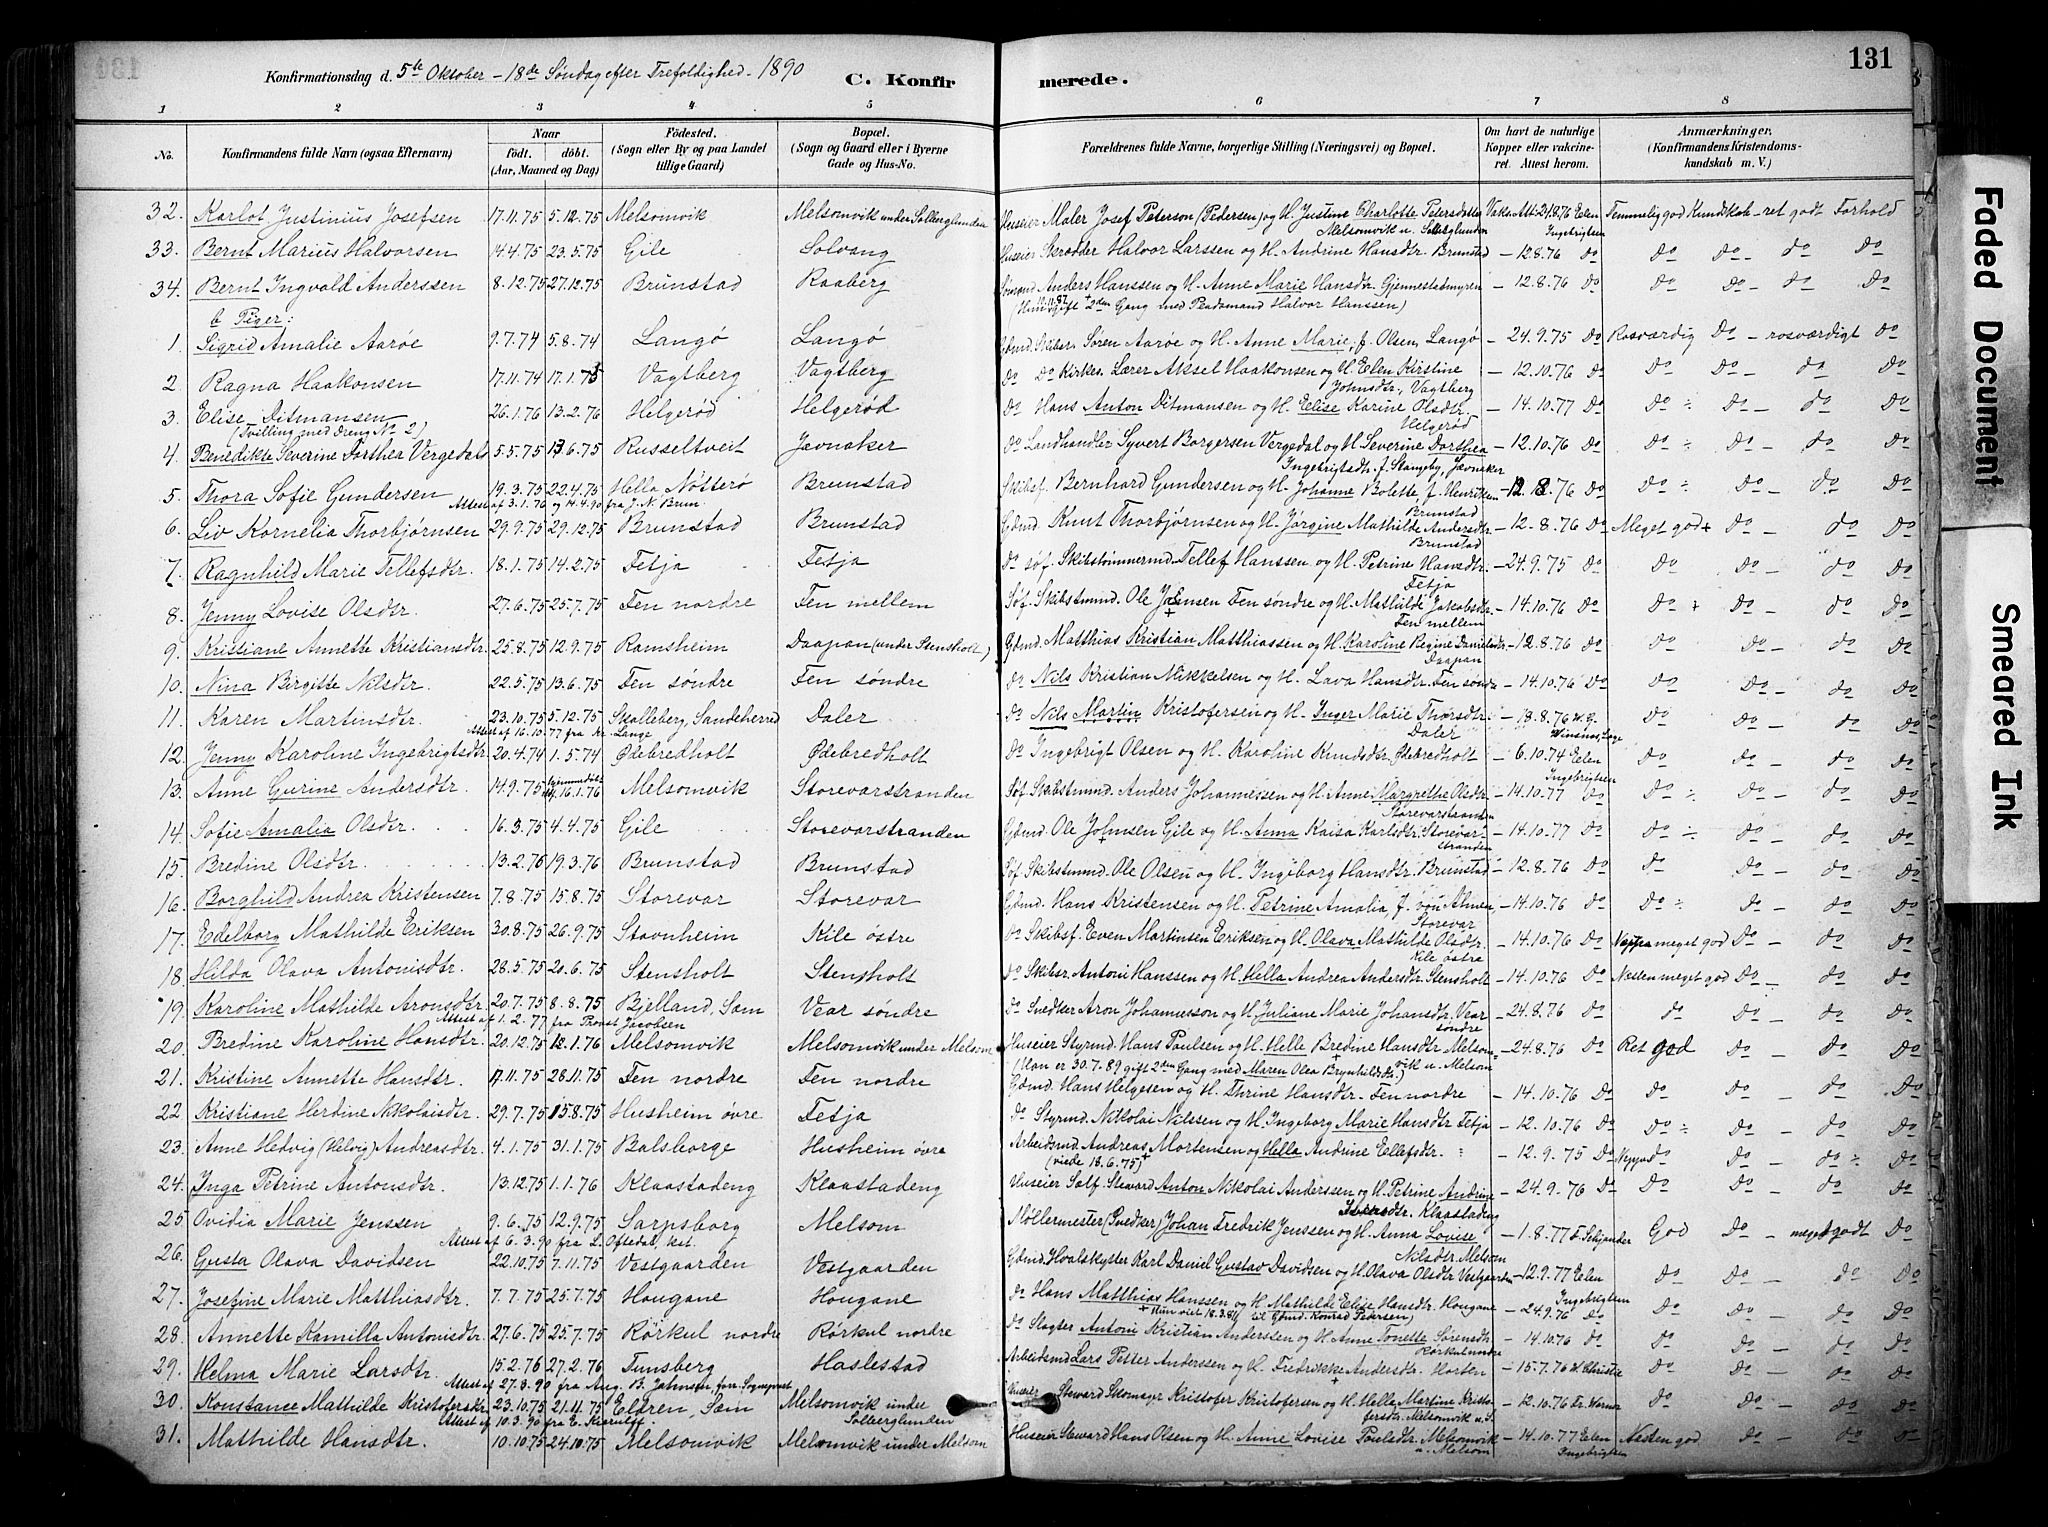 131
Konfirmationsdag d. 5te Oktober - 18de Søndag efter Trefoldighed. 1890 C. Konfirmerede.
1 2 3 4 5 6 7 8
No. Konfirmandens fulde Navn (ogsaa Efternavn) Naar født. døbt. (Aar, Maaned og Dag) Fødested. (Sogn eller By og paa Landet tillige Gaard) Bopæl. (Sogn og Gaard eller i Byerne Gade og Hus-No. Forældrenes fulde Navne, borgerlige Stilling (Næringsvei) og Bopæl. Om havt de naturlige Kopper eller vakcineret. Attest herom. Anmærkninger, (Konfirmandens Kristendomskundskab m. V.)
32. Karlot Justinius Josefsen 17.11.75 5.12.75 Melsomvik Melsomvik under Solberglunden Huseier Maler Josef Peterson (Pedersen) og H. Justine Charlotte Petersdatter Melsomvik u. Solberglunden Vaks. Att. 24.8.76 Elen Ingebrigtsen Temmelig god Kundskab - ret godt Forhold
33. Bernt Marius Halvorsen 14.4.75 23.5.75 Gile Solvang Huseier Skrædder Halvor Larssen og H. Andrine Hansdtr. Brunstad - 12.8.76 Do Do Do - do Do
34. Bernt Ingvald Anderssen 8.12.75 27.12.75 Brunstad Raaberg Anders Hanssen og H. Anne Marie Hansdtr. Gjennestadmyren - 12.8.76 Do Do Do - do Do
(Hun gift 2den Gang med Pladsmand Halvor Hanssen)
b Piger:
1. Sigrid Amalie Aarøe 9.7.74 5.8.74 Langø Langø Gdmd. Skibsr. Søren Aarøe og H. Anne Marie, f. Olsen, Langø - 24.9.75 Do Rosværdig Do - rosværdigt Do
2. Ragna Haakonsen 17.11.74 17.1.75 Vagtberg Vagtberg Do Do Kirkes. Lærer Aksel Haakonsen og H. Elen Kristine Johnsdtr., Vagtberg - 12.10.76 Do Do Do - do Do
3. Elise Ditmansen 26.1.76 13.2.76 Helgerød Helgerød Do Hans Anton Ditmansen og H. Elise Karine Olsdtr. Helgerød - 14.10.77 Do Do ÷ Do - do Do
(Tvilling med Dreng No 2)
4. Benedikte Severine Dorthea Vergedals 5.5.75 13.6.75 Russeltveit Javnaker Do Landhandler Syvert Borgersen Vergedal og H. Severine Dorthea Ingebrigtsdtr. f. Stangeby, Jævnaker - 12.10.76 Do ÷ Do - do Do
5. Thora Sofie Gundersen 19.3.75 22.4.75 Hella Nøtterø Brunstad Skibsf. Bernhard Gundersen og H. Johanne Bolette f. Henriksen Brunstad 12.8.76 Do Do ÷ Do - do Do
Attest af 3.1.76 og 14.4.90 fra J. N. Brun.
6. Liv Kornelia Thorbjørnsen 29.9.75 29.12.75 Brunstad Brunstad Gdmd. Knut Thorbjørnsen og H. Jørgine Mathilde Andersdtr. Brunstad - 12.8.76 Do Meget god + Do - do Do
7. Ragnhild Marie Tellefsdtr. 18.1.75 14.2.75 Fetja Fetja Do søf. Skibstømmermd. Tellef Hanssen og H. Petrine Hansdtr. Fetja - 24.9.75 Do Do Do - do Do
8. Jenny Lovise Olsdtr. 27.6.75 25.7.75 Fen nordre Fen mellem Søf. Skibstmmd. Ole Johnsen Fen søndre og H. Mathilde Jakobsdtr. Fen mellem - 14.10.76 Do Do + Do - do Do
9. Kristiane Annette Kristiansdtr. 25.8.75 12.9.75 Ramsheim Daapan (under Stensholt) Gdmd. Matthias Kristian Matthiassen og H. Karoline Regine Danielsdtr. Daapan - 12.8.76 Do Do Do - do Do
10. Nina Birgitte Nilsdtr. 22.5.75 13.6.75 Fen søndre Fen søndre Do Nils Kristian Mikkelsen og H. Lava Hansdtr. Fen søndre - 14.10.76 Do Do Do - do Do
11. Karen Martinsdtr. 23.10.75 5.12.75 Skalleberg, Sandeherred Daler Do Nils Martin Kristofersen og H. Inger Marie Thorsdtr. Daler - 18.8.76 Do Do - do Do
Attest af 16.10.77 fra Kr. Lange
12. Jenny Karoline Ingebrigtsdtr. 20.4.74 1.5.74 Ødebredholt Ødebredholt Do Ingebrigt Olsen og H. Karoline Knudsdtr. Ødebredholt - 6.10.74 Elen Ingebrigtsen Do Do - do Do
13. Anne Gurine Andersdtr. 14.9.75 hjemmedøbt 16.1.76 Melsomvik Storevarstranden Søf. Skibstmmd. Anders Johannessen og H. Anne Margrethe Olsdtr. Storevarstranden - 14.10.77 Do Do ÷ Do - do Do
14. Sofie Amalia Olsdtr. 16.3.75 4.4.75 Gile Storevarstranden Gdmd. Ole Johnsen Gile og H. Anna Kaisa Karlsdtr. Storevarstranden - 14.10.77 Do Do ÷ Do - do Do
15. Bredine Olsdtr. 13.2.76 19.3.76 Brunstad Brunstad Søf. Skibstmmd. Ole Olsen og H. Ingeborg Hansdtr. Brunstad - 12.8.76 Do Do Do - do Do
16. Borghild Andrea Kristensen 7.8.75 15.8.75 Storevar Storevar Gdmd. Hans Kristensen og H. Petrine Amalia f. von Ahnen, Storevar - 14.10.76 Do Do ÷ Do - do Do
17. Edelborg Mathilde Eriksen 30.8.75 26.9.75 Stavnheim Kile østre Do Skibsf. Even Martinsen Eriksen og H. Olava Mathilde Olsdtr. Kile østre - 14.10.76 Do Neppe meget god Do - do Do
18. Hilda Olava Antonisdtr. 28.5.75 20.6.75 Stensholt Stensholt Do Skibsr. Antoni Hanssen og H. Hella Andrea Andersdtr. Stensholt - 14.10.76 Do Næsten meget god Do - do Do
19. Karoline Mathilde Aronsdtr. 20.7.75 8.8.75 Bjelland, Sem Vear søndre Do Snedker Aron Johannesson og H. Juliane Marie Johansdtr. Vear søndre - 24.8.76 Do do Do - do Do
Attest af 1.2.77 fra Provst Jacobsen
20. Bredine Karoline Hansdtr. 20.12.75 12.1.76 Melsomvik Melsomvik under Melsom Huseier Styrmd. Hans Paulsen og H. Helle Bredine Hansdtr. Melsomvik u. Melsom - 24.8.76 Do Ret god Do - do Do
(Han er 30.7.89 gift 2den Gang med Maren Olea Brynhildsdtr.)
21. Kristine Annette Hansdtr. 17.11.75 28.11.75 Fen nordre Fen nordre Gdmd. Hans Helgesen og H. Thrine Hansdtr. Fen nordre - 14.10.76 Do Do Do - do Do
22 Kristiane Herdine Nikolaisdtr. 29.7.75 15.8.75 Husheim øvre Fetja Do Styrmd. Nikolai Nilssen og H. Ingeborg Marie Hansdtr. Fetja - 12.10.76 Do Do ÷ Do - do Do
23. Anne Hedvig (Helvig) Andreasdtr. 4.1.75 31.1.75 Balsborge Husheim øvre Arbeidsmd. Andreas Mortensen og Hella Andrine Ellefsdtr. - 12.9.75 Do Neppe do Do - do ÷ Do
(viede 18.6.75)
24. Inga Petrine Antonsdtr. 13.12.75 1.1.76 Klaastadeng Klaastadeng Huseier Søf. Steward Anton Nikolai Anderssen og H. Petrine Andrine Klaastadeng - 24.9.76 Do Do Do - do Do
25. Ovidia Marie Jenssen 9.6.75 12.9.75 Sarpsborg Melsom Møllermester (Snedker) Johan Fredrik Jenssen og H. Anna Lovise Nilsdtr. Melsom - 1.8.77 God Do - meget godt Do
Attest af 6.3.90 fra L. Oftedal, kat.
26. Gusta Olava Davidsen 22.10.75 7.11.75 Vestgaarden Vestgaarden Gdmd. Hvalskytter Karl Daniel Gustav Davidsen og H. Olava Olsdtr. Vestgaarden - 12.9.77 Elen Ingebrigtsen Do Do - do Do
27. Josefine Marie Matthiasdtr. 7.7.75 25.7.75 Hougane Hougane Do Hans Matthias Hanssen og H. Mathilde Elise Hansdtr. Hougane - 24.9.76 Do Do Do - do Do
(+ Hun viet 18.3.86 til Gdmd. Konrad Pedersen)
28. Annette Kamilla Antonisdtr. 27.6.75 25.7.75 Rørkul nordre Rørkul nordre Do Slagter Antoni Kristian Anderssen og H. Anne Tonette Sørensdtr. Rørkul nordre - 14.10.76 Do Do Do - do Do
29. Helma Marie Larsdtr. 15.2.76 27.2.76 Tunsberg Haslestad Arbeidsmd Lars Petter Anderssen og H. Fredrikke Andersdtr. Horten - 15.7.76 H. Christie Do Do - do Do
Attest af 27.8.90 fra Aug. B. Johnsen, forr. Sogneprest
30. Konstance Mathilde Kristofersdtr. 23.10.75 21.11.75 Elfren, Sem Melsomvik under Solberglunden Huseier Steward Skomager Kristofer Kristofersen og H. Hella Martine Kristofersdtr. Melsomvik u. S. - 12.10.76 Do Do - do Do
Attest af 10.3.90 fra E. Kierulff.
31. Mathilde Hansdtr. 10.10.75 24.10.75 Melsomvik Melsomvik under Melsom Huseier Steward Hans Olsen og H. Anne Lovise Paulsdtr. Melsomvik u. Melsom - 14.10.77 Elen Ingebrigtsen Næsten god Do - do Do
Faded Document
Smeared Ink